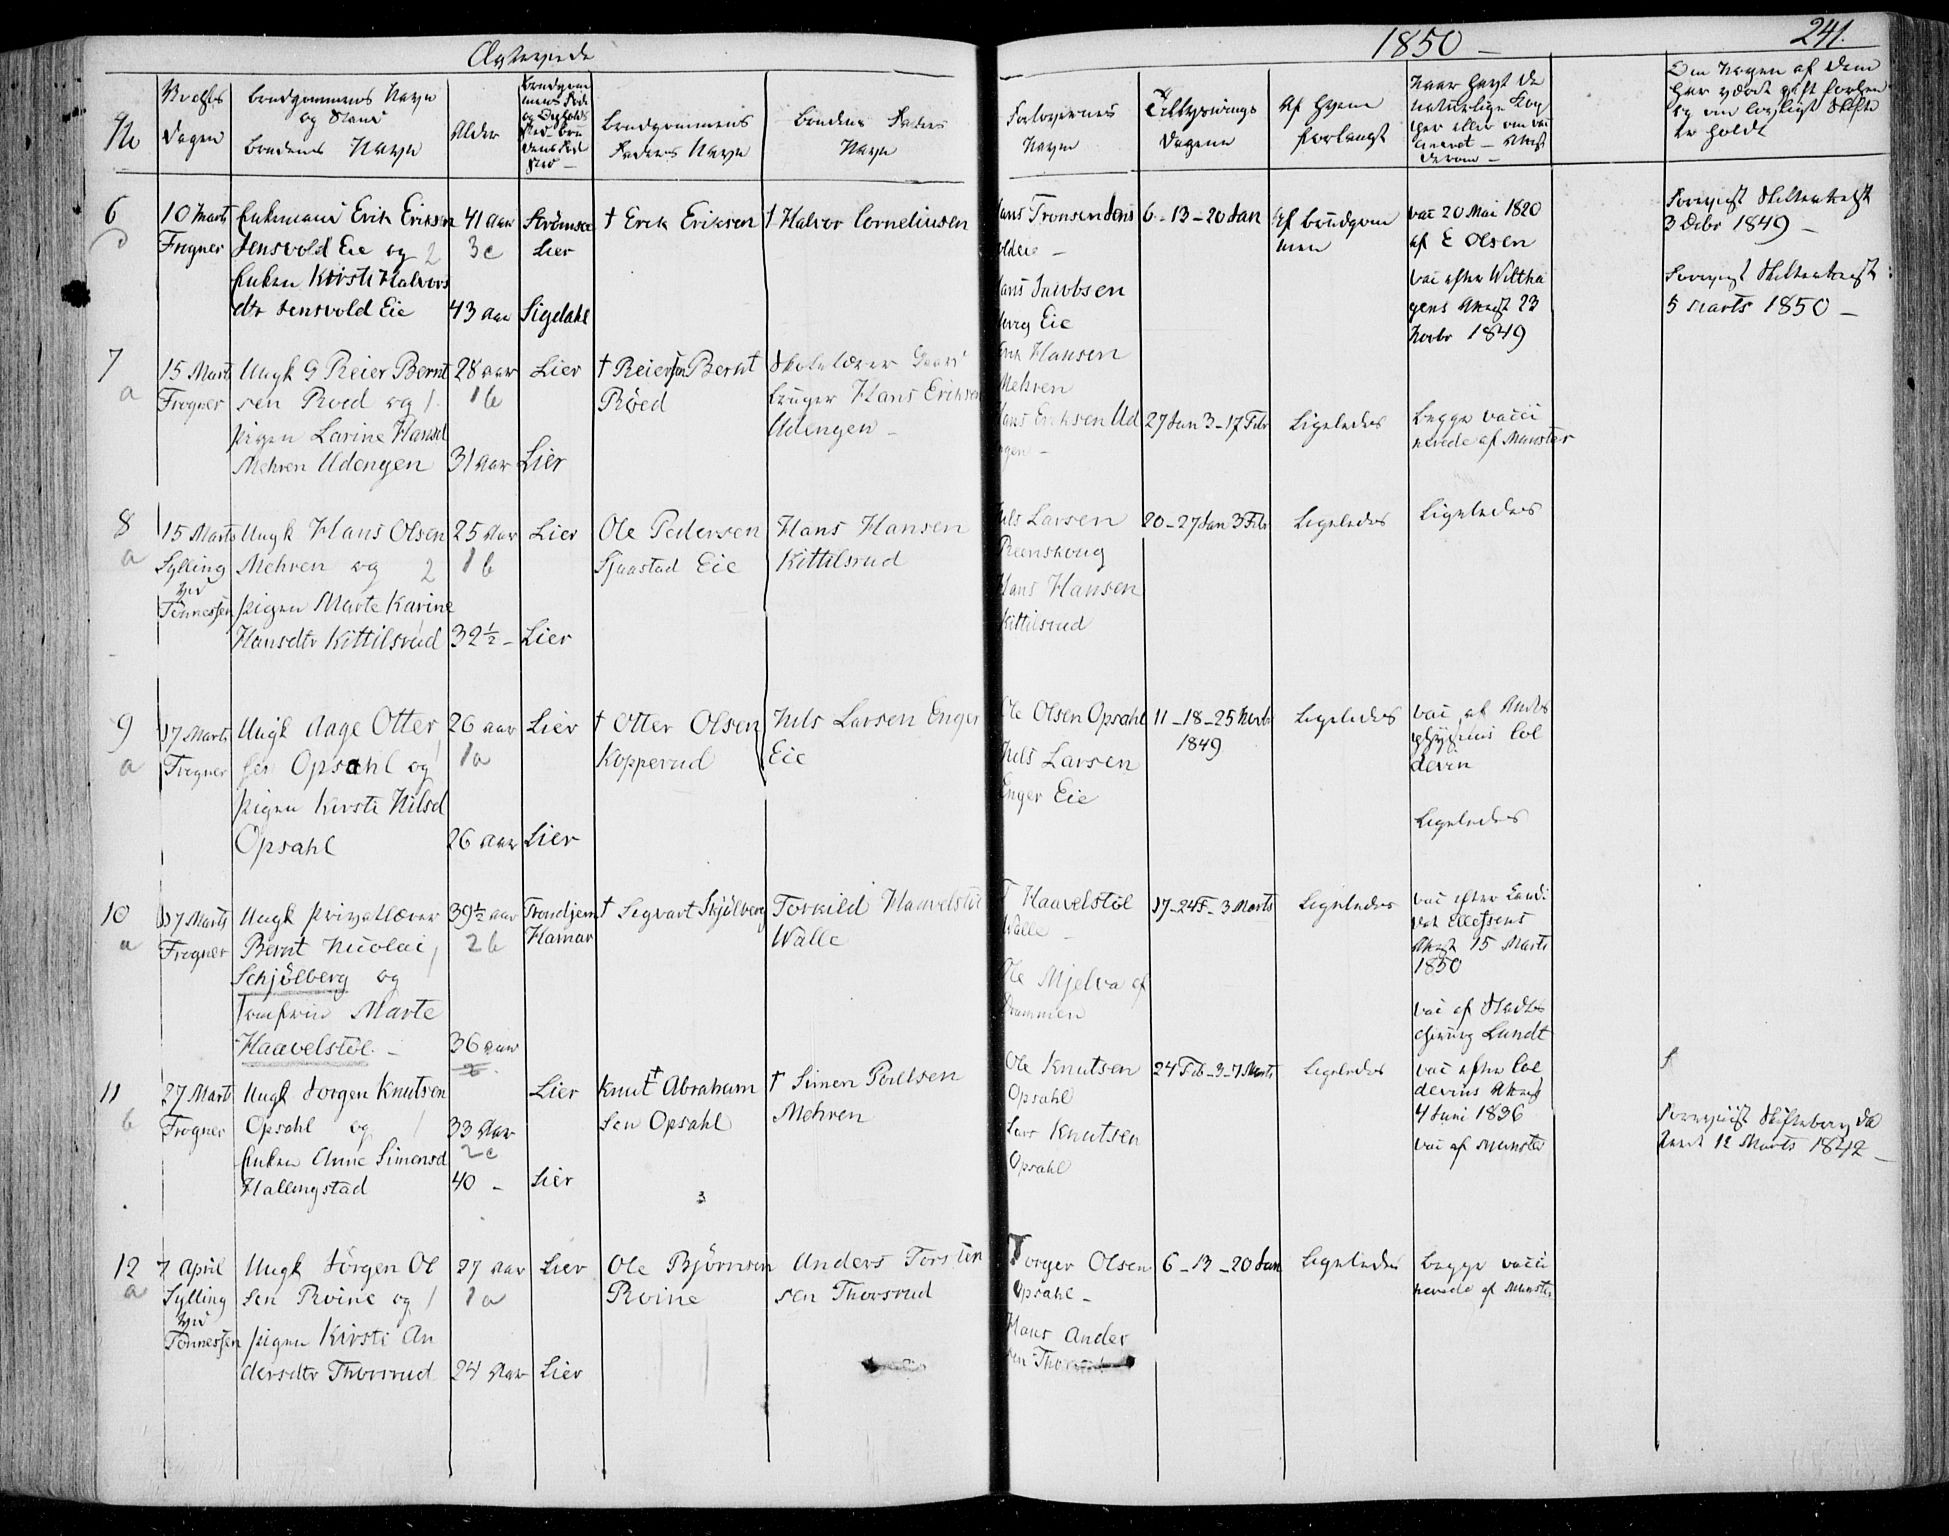 Ægteviede
1850 –
241.
No
Vielses Dagen
Brudgommens Navn og Stand
Brudens Navn
Alder
Brudgommens Fødested og Opholds Sted – Brudens Føde Sted –
Brudgommens Faders Navn
Brudens Faders Navn
Forlovernes Navne
Tillysnings Dagene
Af Hvem forlangt
Om nogen af dem har været gift forhen og om lovligt Skifte er holdt
6
10 Marts
Frogner
Enkemand Erik Eriksen
Jensvold Eie og
Enken Kirsti Halvors
dtr Jensvold Eie
41 aar
3c
43 aar
Strømsøe
Lier
Sigdahl
† Erik Eriksen
† Halvor Corneliusen
Hans Tronsen Jens
voldeie –
Hans Jacobsen
Eie
6 – 13 – 20 Jan
Af Brudgom
men
vac 20 Mai 1820
af E Olsen
vac efter Willha
gens Attest 23
Novbr 1849
3 Decbr 1849 –
5 Marts 1850 –
7
a
15 Marts
Frogner
Ungk G Reier Bernt
sen Røed og
pigen Larine Hansd
Mehren Udengen
28 aar
1b
31 aar
Lier
Lier
† Reiersen Bernt
Røed
Skolelærer Gaard
bruger Hans Eriksen
Udengen –
Erik Hansen
Mehren
Hans Eriksen Ud
engen –
27 Jan 3 – 17 Febr
Ligeledes
Begge vacci
nerede af Munster
8
a
15 Marts
Sylling
ved
Tønnessen
Ungk Hans Olsen
Mehren og 2
pigen Marte Karine
Hansdtr Kittilsrud
25 aar
1b
32½ –
Lier
Lier
Ole Pedersen
Sjaastad Eie
Hans Hansen
Kittilsrud
Nils Larsen
Reenskoug
Hans Hansen
Kittilsrud
20 – 27 Jan 3 Febr
Ligeledes
Ligeledes
9
a
17 Marts
Frogner
Ungk Aage Otter
sen Opsahl og
pigen Kirsti Nilsd
Opsahl
26 aar
1a
26 aar
Lier
Lier
† Otter Olsen
Kopperud
Nils Larsen Enger
Eie
Ole Olsen Opsahl
Nils Larsen
Enger Eie
11 – 18 – 25 Novbr
1849
Ligeledes
Ligeledes
10
a
17 Marts
Frogner
Ungk privatlærer
Bernt Nicolai
Schjølberg og
Jomfrue Marte
Haavelstøl –
39½ aar
2b
36 aar
Trondjem
Hamar
† Segvart Skjølberg
Torkild Haavelstøl
Walle
T Haavelstøl
Walle –
Ole Mjelva af
Drammen
17 – 24 F – 3 Marts
Ligeledes
vac efter Candi
dat Ellefsens
Attest 15 Marts
1850
Lundt
11
b
27 Marts
Frogner
Ungk Jørgen Knutsen
Opsahl og
Enken Anne Simensd
Hallingstad
33 Aar
2c
40 –
Lier
Lier
Knut † Abraham
sen Opsahl
† Simen Poulsen
Mehren
Ole Knutsen
Opsahl
Lars Knutsen
Opsahl
24 Feb – 3 – 7 Marts
Ligeledes
vac efter Col
devins Attest
4 Juni 1836
vac af Munster
12 Marts 1842 –
12
a
7 April
Sylling
ved
Tønnessen
Ungk Jørgen Ol
sen Rvine og
pigen Kirsti An
dersdtr Thorsrud
27 aar
1a
24 Aar
Lier
Lier
Ole Bjørnsen
Rvine
Anders Torsten
sen Thorsrud
Torger Olsen
Opsahl –
Hans Ander
sen Thorsrud
6 – 13 – 20 Jan
Ligeledes
Begge vacci
nerede af Munster